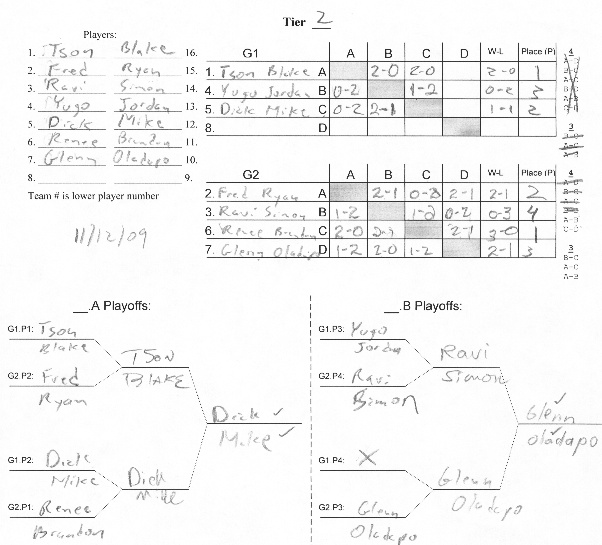 Tier 2
Players:
1. Tson Blake 16.
2. Fred Ryan 15.
3. Ravi Simon 14.
4. Yugo Jordan 13.
5. Dick Mike 12.
6. Renee Brandon 11.
7. Glenn Oladapo 10.
8. 9.
Team # is lower player number
11/12/09
G1 A B C D W-L Place (P)
1. Tson Blake A 2-0 2-0 2-0 1
4. Yugo Jordan B 0-2 1-2 0-2 3
5. Dick Mike C 0-2 2-1 1-1 2
8. D
4
3
G2 A B C D W-L Place (P)
2. Fred Ryan A 2-1 0-2 2-1 2-1 2
3. Ravi Simon B 1-2 1-2 0-2 0-3 4
6. Renee Brandon C 2-0 2-1 3-0 1
7. Glenn Oladapo D 1-2 2-0 1-2 2-1 3
4
A-B
C-D
3
B-C
A-C
A-B
__.A Playoffs:
G1.P1: Tson Blake
TSON BLAKE
G2.P2: Fred Ryan
Dick ✓
Mike ✓
G1.P2: Dick Mike
Dick Mike
G2.P1: Renee Brandon
__.B Playoffs:
G1.P3: Yugo Jordan
Ravi Simon
G2.P4: Ravi Simon
Glenn ✓
Oladapo ✓
G1.P4: X
Glenn Oladapo
G2.P3: Glenn Oladapo